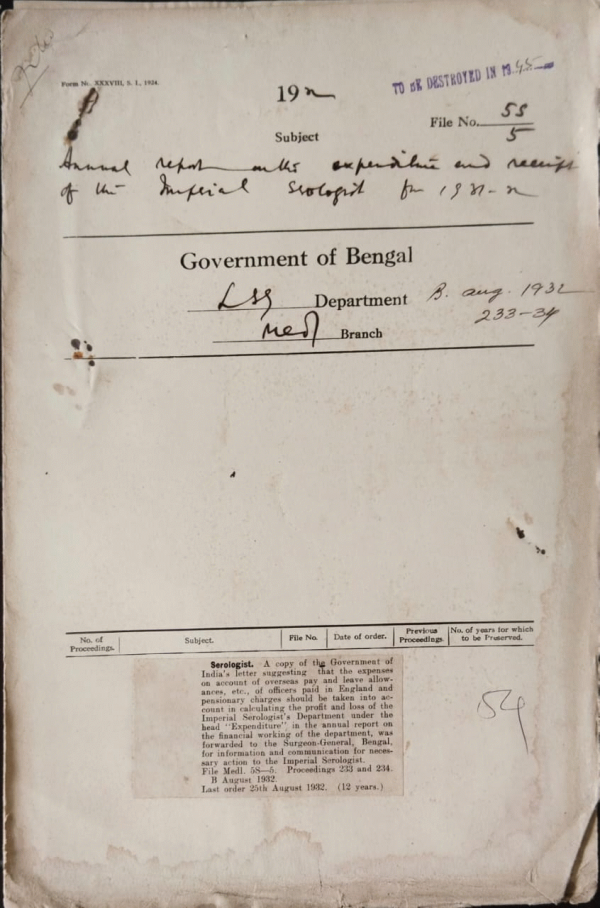 Form No. XXXVIII, S. I., 1924.
TO BE DESTROYED IN 1945
1932
File No. 5S/5
Subject
Annual report on the expenditure and receipt
of the Imperial Serologist for 1931-32
Government of Bengal
LSG Department
B. Aug. 1932
233-34
Medl Branch
No. of Proceedings.
Subject.
File No.
Date of order.
Previous Proceedings.
No. of years for which to be Preserved.
Serologist. A copy of the Government of
India's letter suggesting that the expenses
on account of overseas pay and leave allow-
ances, etc., of officers paid in England and
pensionary charges should be taken into ac-
count in calculating the profit and loss of the
Imperial Serologist's Department under the
head "Expenditure" in the annual report on
the financial working of the department, was
forwarded to the Surgeon-General, Bengal,
for information and communication for neces-
sary action to the Imperial Serologist.
File Medl. 5S—5. Proceedings 233 and 234.
B August 1932.
Last order 25th August 1932. (12 years.)